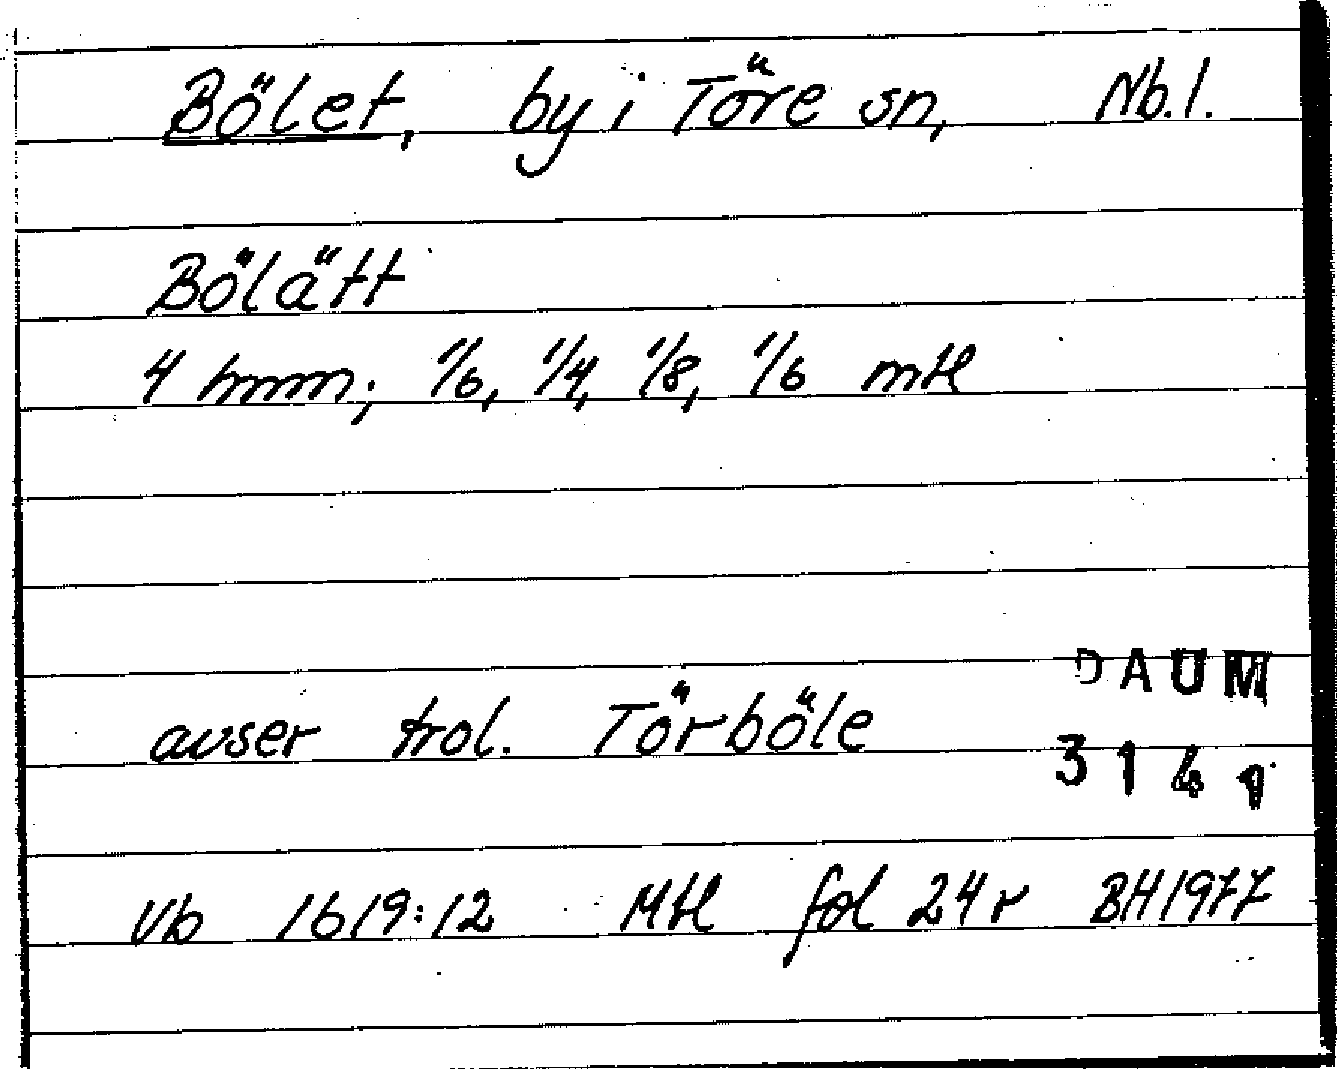 Bölet, by i Töre sn, Nb.l.
Bölätt
4 hmm; 1/6, 1/4, 1/8, 1/6 mtl
DAUM
avser trol. Törböle
3141
Vb 1619:12 Mtl fol 24r BH1977